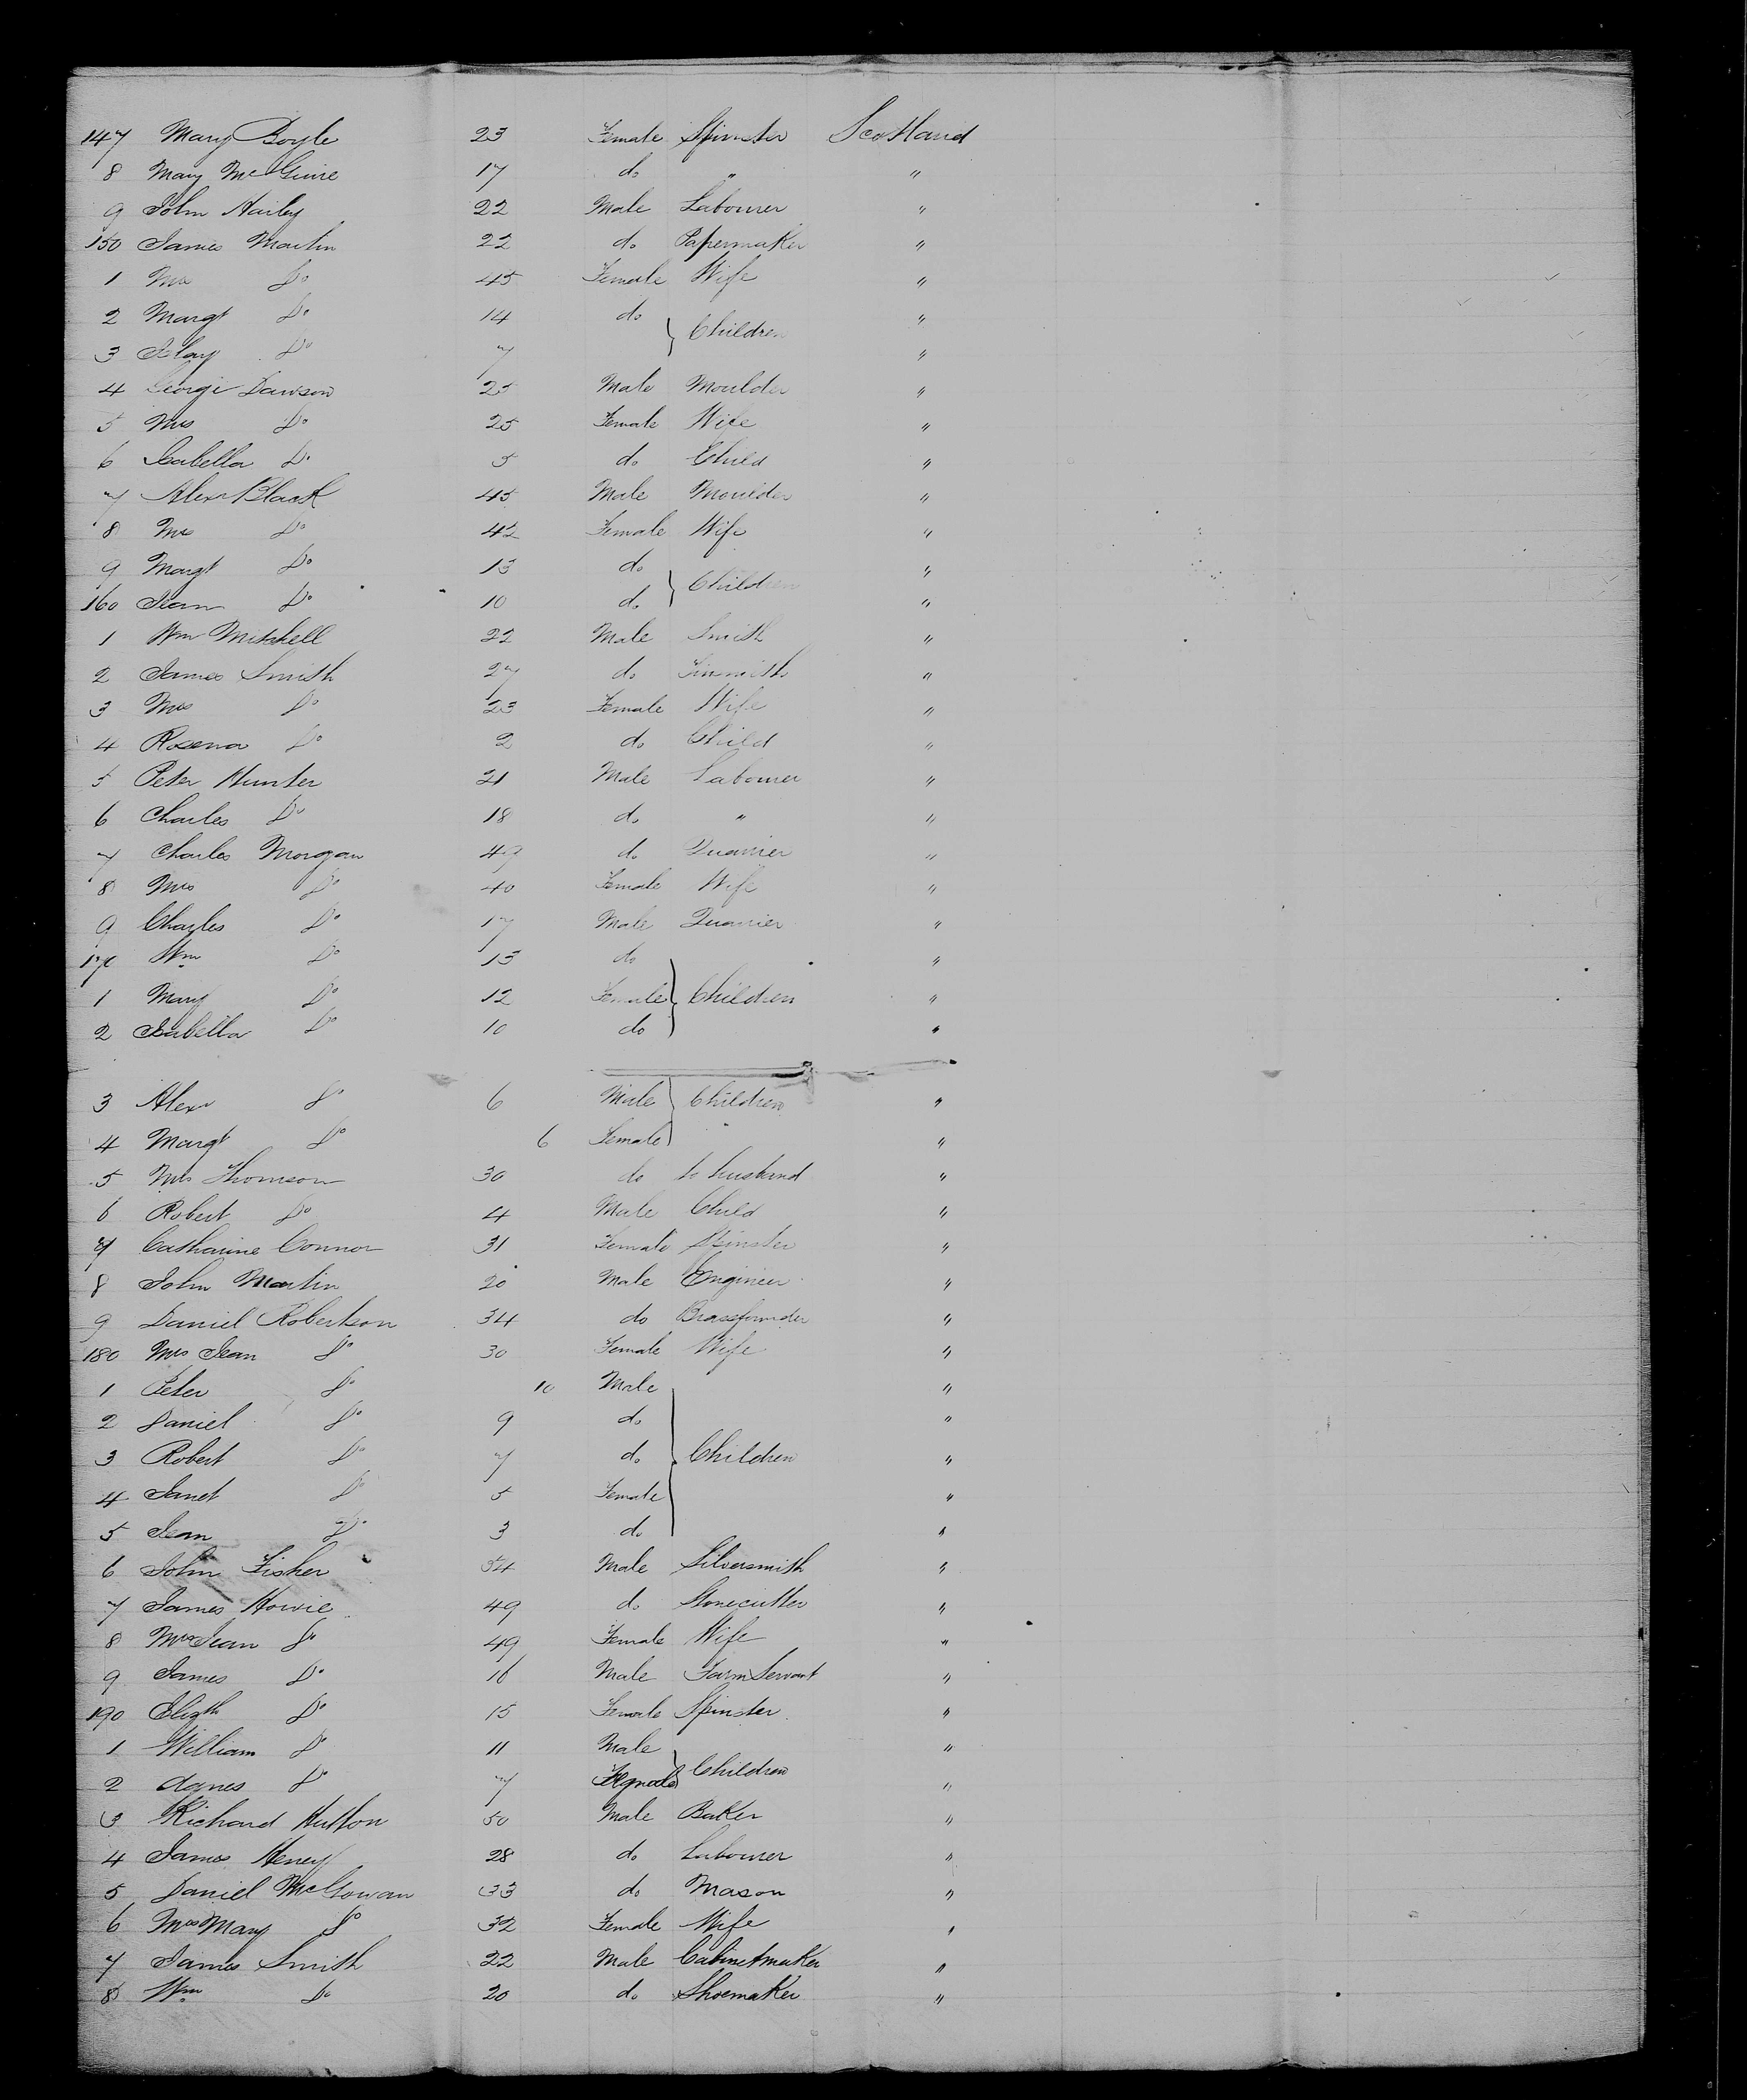 147 Mary Boyle 23 Female Spinster Scotland
8 Mary McGuire 17 do " "
9 John Harley 22 Male Labourer "
150 James Martin 22 do Papermaker "
1 Mrs Do 45 Female Wife "
2 Margt Do 14 do Children "
3 Do 7 "
4 George Dawson 25 Male Moulder "
5 Mrs Do 25 Female Wife "
6 Isabella Do 5 do Child "
7 Alexr Black 45 Male Moulder "
8 Mrs Do 42 Female Wife "
9 Margt Do 13 do Children "
160 Jean Do 10 do "
1 Wm Mitchell 22 Male Smith "
2 James Smith 27 do Tinsmith "
3 Mrs Do 23 Female Wife "
4 Rosena Do 2 do Child "
5 Peter Hunter 21 Male Labourer "
6 Charles Do 18 do " "
7 Charles Morgan 49 do Quarrier "
8 Mrs Do 40 Female Wife "
9 Charles Do 17 Male Quarrier "
170 Wm Do 13 do "
1 Mary Do 12 Female Children "
2 Isabella Do 10 do "
3 Alexr Do 6 Male Children "
4 Margt Do 6 Female "
5 Mrs Thomson 30 do to husband "
6 Robert Do 4 Male Child "
7 Catharine Connor 31 Female Spinster "
8 John Martin 20 Male Engineer "
9 Daniel Robertson 34 do Brassfounder "
180 Mrs Jean Do 30 Female Wife "
1 Peter Do 10 Male "
2 Daniel Do 9 do "
3 Robert Do 7 do Children "
4 Janet Do 5 Female "
5 Jean Do 3 do "
6 John Fisher 34 Male Silversmith "
7 James Howie 49 do Stonecutter "
8 Mrs Jean Do 49 Female Wife "
9 James Do 16 Male Farm Servant "
190 Elizth Do 15 Female Spinster "
1 William Do 11 Male "
2 Agnes Do 7 Female Children "
3 Richard Hutton 50 Male Baker "
4 James Henry 28 do Labourer "
5 Daniel McGowan 33 do Mason "
6 Mrs Mary Do 32 Female Wife "
7 James Smith 22 Male Cabinetmaker "
8 Wm Do 20 do Shoemaker "